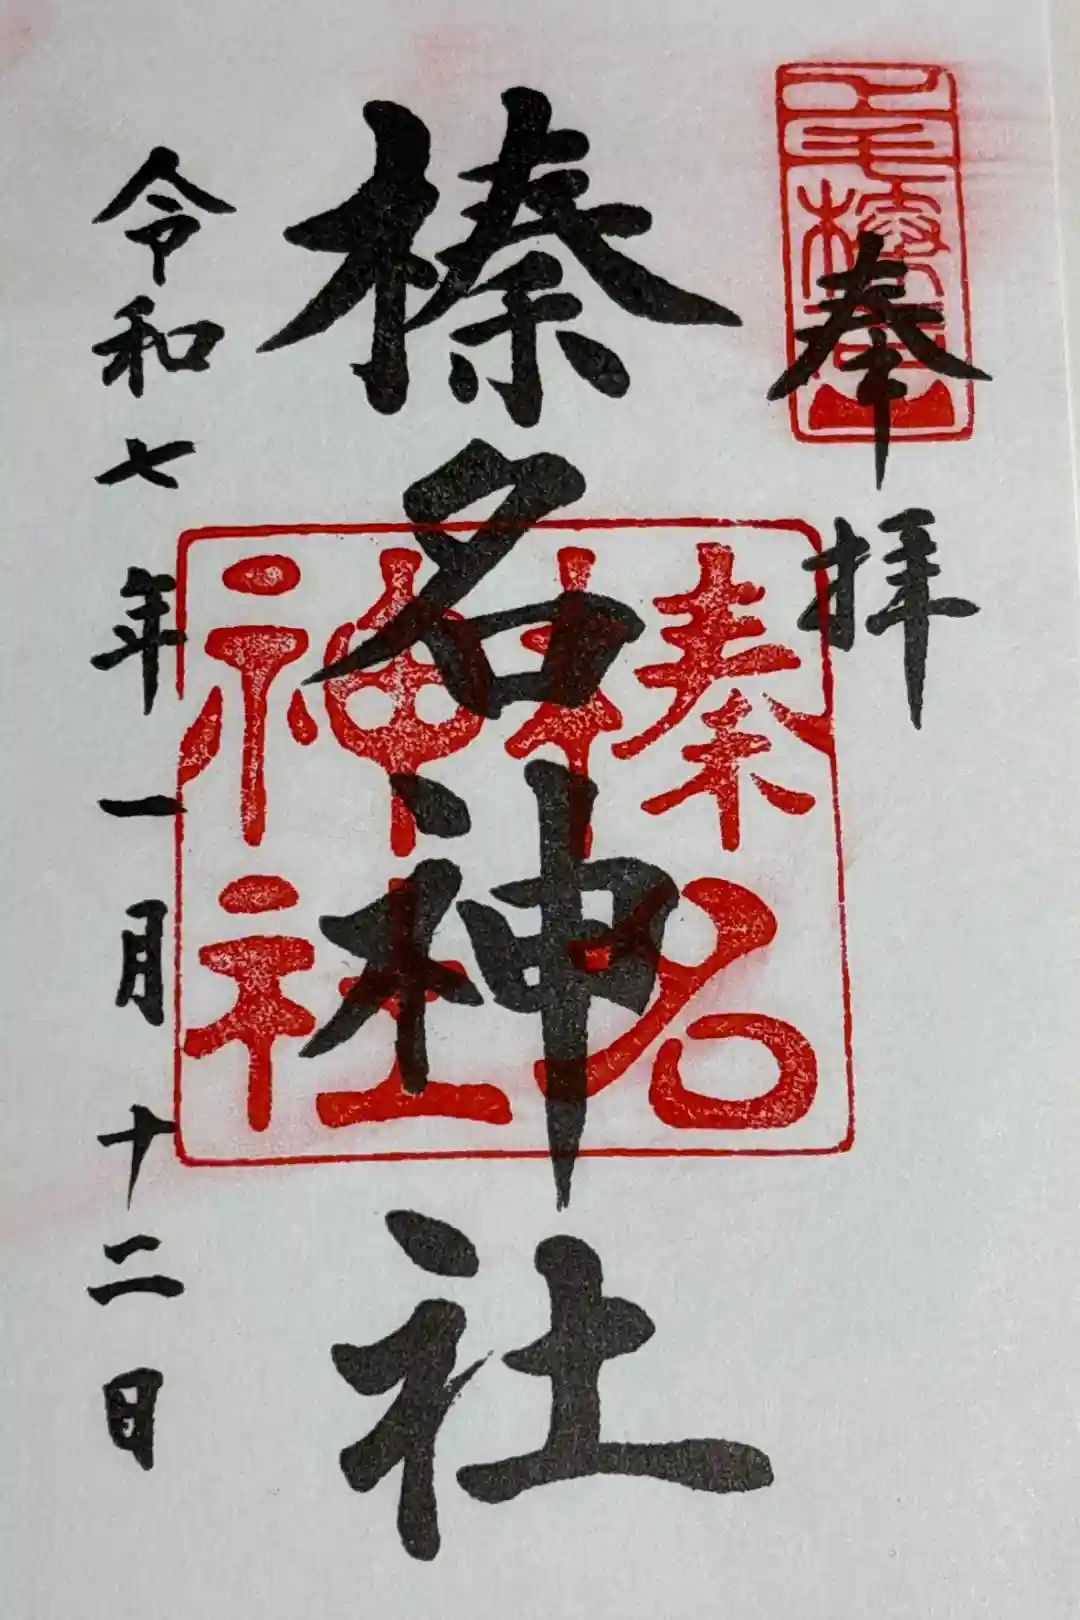 奉拝
榛名神社
榛名神社
令和七年一月十二日